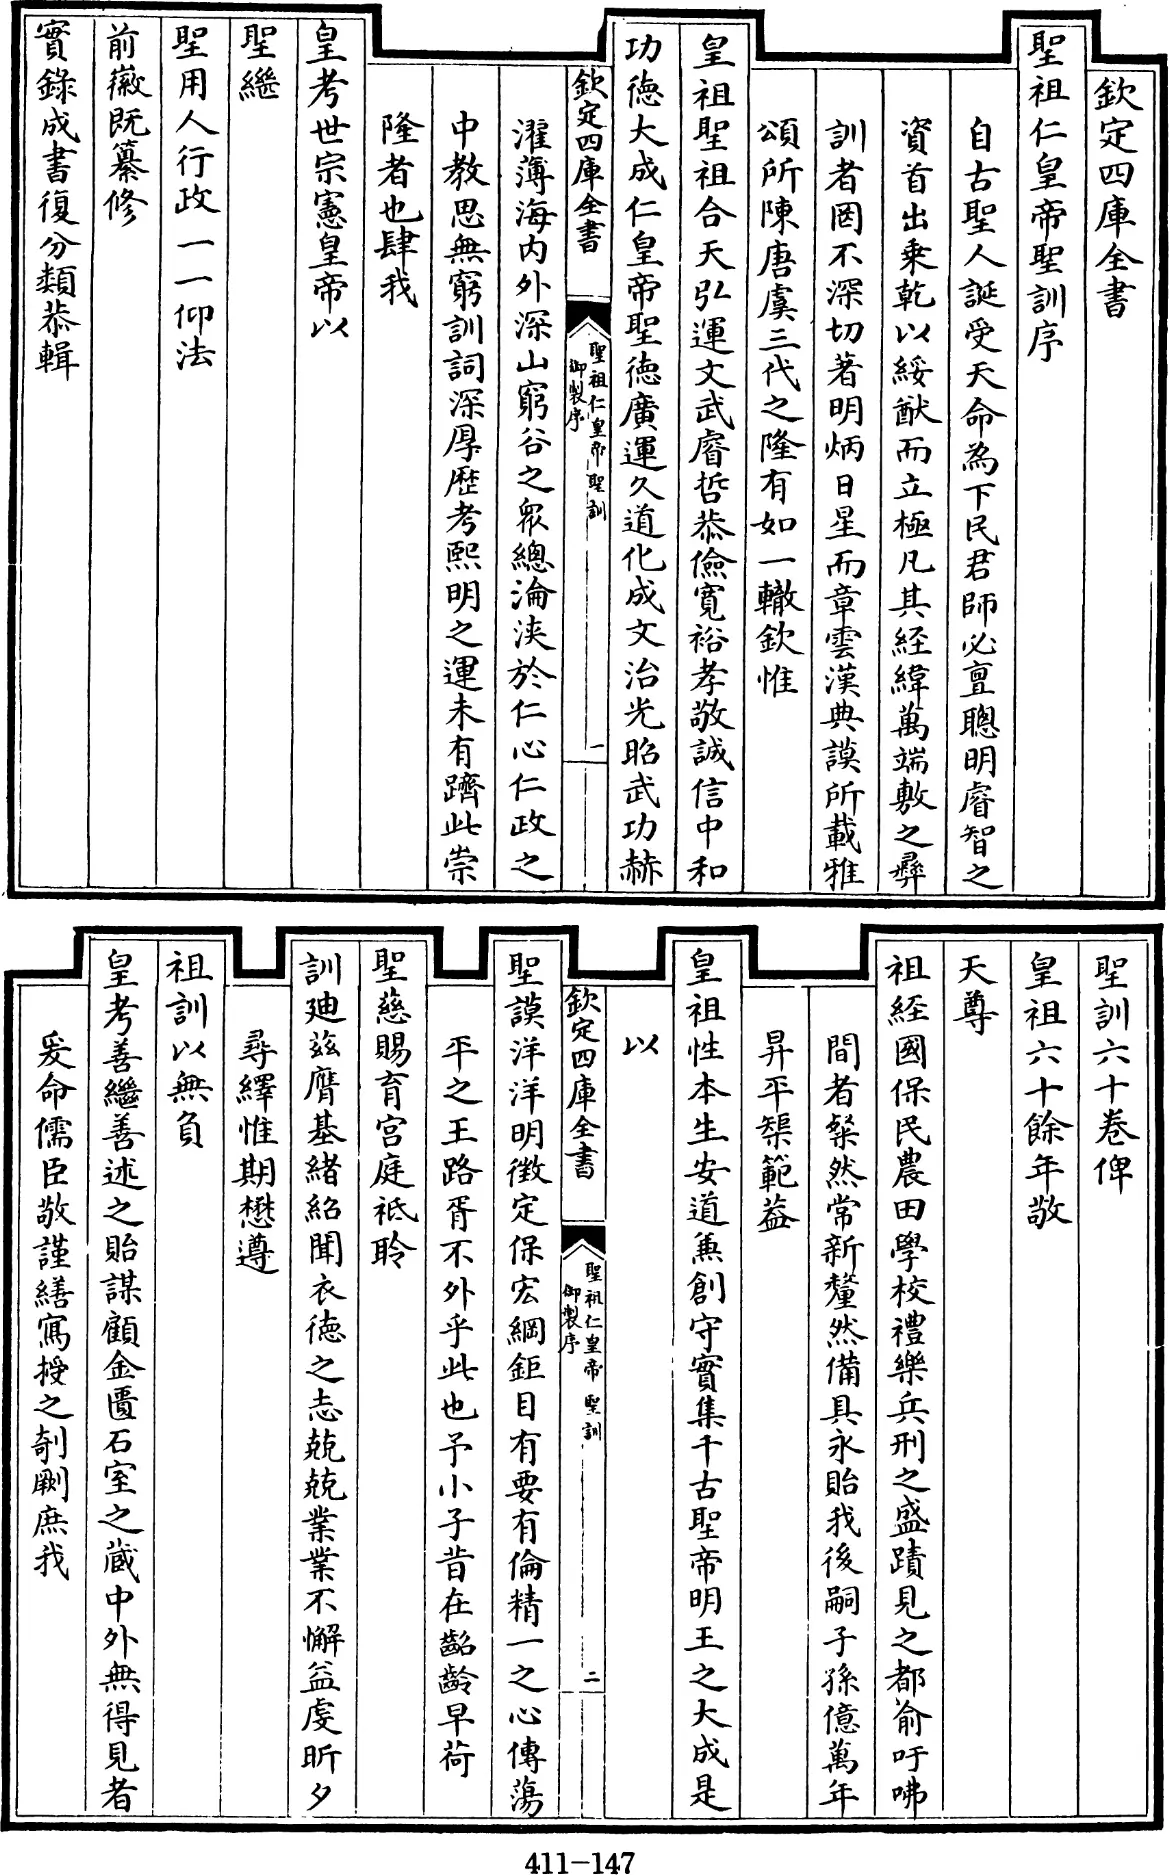 欽定四庫全書
聖祖仁皇帝聖訓序
自古聖人誕受天命為下民君師必亶聰明睿智之
資首出乗乾以綏猷而立極凡其經緯萬端敷之彞
訓者罔不深切著明炳日星而章雲漢典謨所載雅
頌所陳唐虞三代之隆有如一轍欽惟
皇祖聖祖合天弘運文武睿哲恭儉寛裕孝敬誠信中和
功徳大成仁皇帝聖徳廣運久道化成文治光昭武功赫
欽定四庫全書
聖祖仁皇帝聖訓
御製序
一
濯薄海内外深山窮谷之衆總淪浹於仁心仁政之
中教思無窮訓詞深厚歴考熙明之運未有躋此崇
隆者也肆我
皇考世宗憲皇帝以
聖繼
聖用人行政一一仰法
前徽既纂修
實錄成書復分類恭輯
聖訓六十卷俾
皇祖六十餘年敬
天尊
祖經國保民農田學校禮樂兵刑之盛蹟見之都俞吁咈
間者粲然常新釐然備具永貽我後嗣子孫億萬年
昇平榘範葢
皇祖性本生安道兼創守實集千古聖帝明王之大成是
以
欽定四庫全書
聖祖仁皇帝聖訓
御製序
二
聖謨洋洋明徴定保宏綱鉅目有要有倫精一之心傳蕩
平之王路胥不外乎此也予小子昔在齠齡早荷
聖慈賜育宫庭祗聆
訓廸兹膺基緒紹聞衣徳之志兢兢業業不懈益虔昕夕
尋繹惟期懋遵
祖訓以無負
皇考善繼善述之貽謀顧金匱石室之藏中外無得見者
爰命儒臣敬謹繕寫授之剞劂庶我
411-147